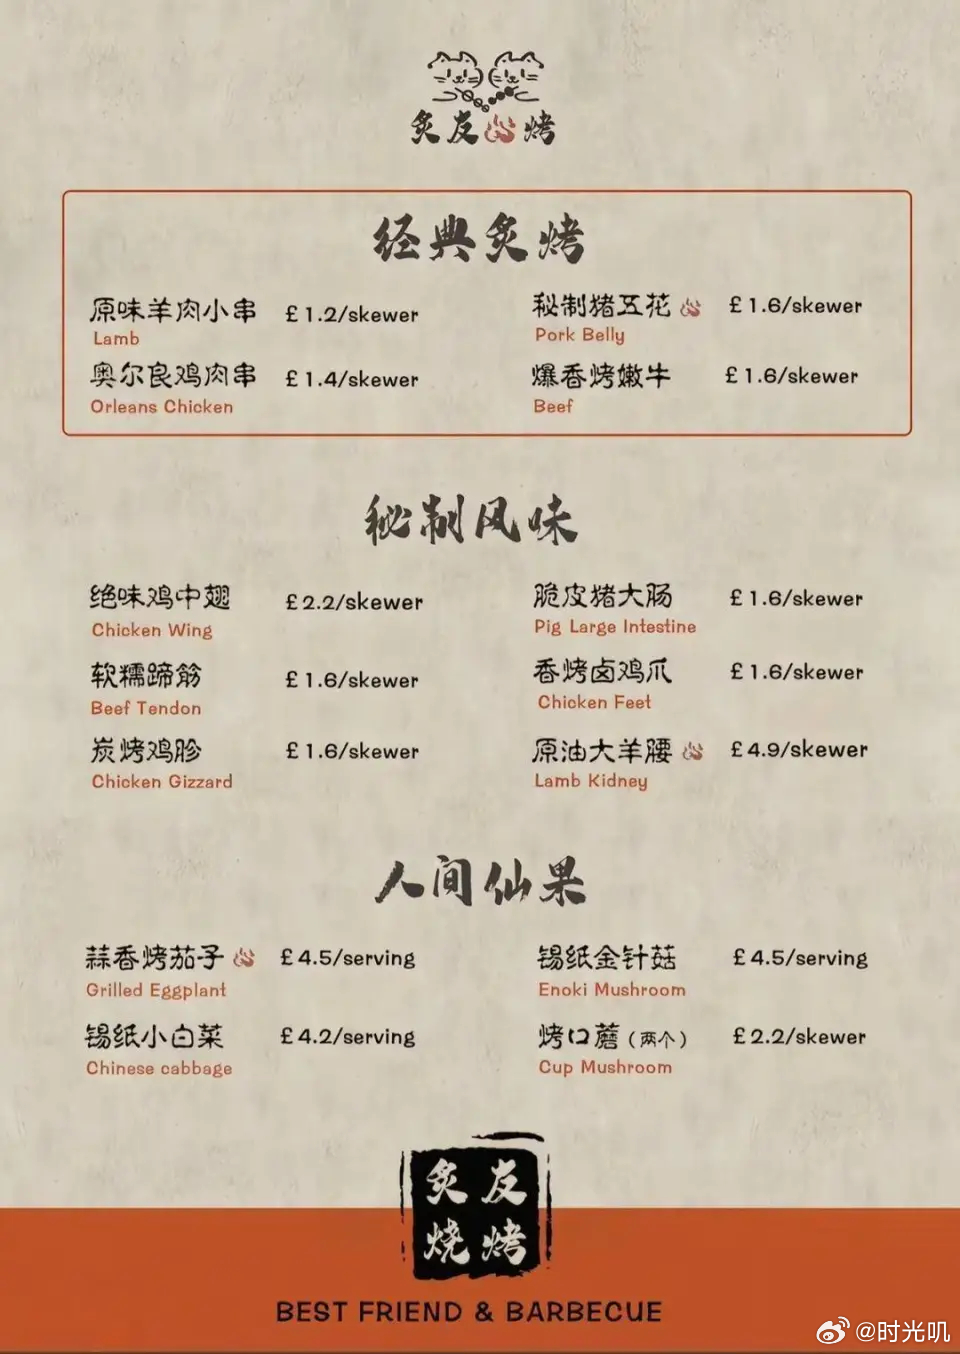 炙友烤
经典炙烤
原味羊肉小串 £1.2/skewer
Lamb
秘制猪五花 £1.6/skewer
Pork Belly
奥尔良鸡肉串 £1.4/skewer
Orleans Chicken
爆香烤嫩牛 £1.6/skewer
Beef
秘制风味
绝味鸡中翅 £2.2/skewer
Chicken Wing
脆皮猪大肠 £1.6/skewer
Pig Large Intestine
软糯蹄筋 £1.6/skewer
Beef Tendon
香烤卤鸡爪 £1.6/skewer
Chicken Feet
炭烤鸡胗 £1.6/skewer
Chicken Gizzard
原油大羊腰 £4.9/skewer
Lamb Kidney
人间仙果
蒜香烤茄子 £4.5/serving
Grilled Eggplant
锡纸金针菇 £4.5/serving
Enoki Mushroom
锡纸小白菜 £4.2/serving
Chinese cabbage
烤口蘑（两个） £2.2/skewer
Cup Mushroom
炙友
烧烤
BEST FRIEND & BARBECUE
@时光叽